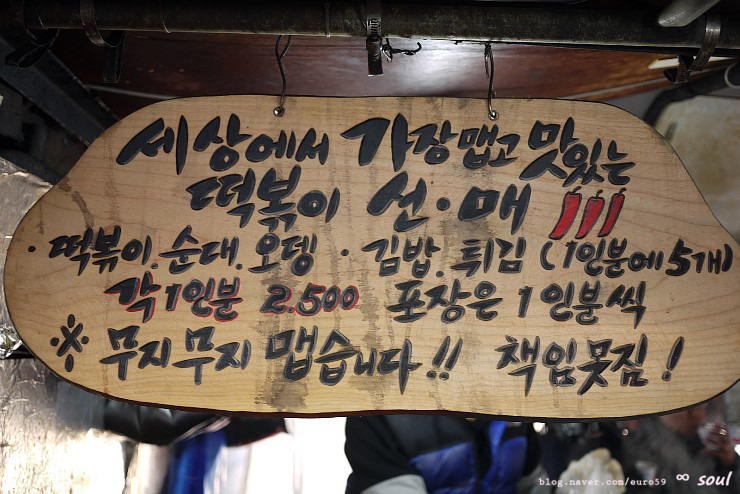 세상에서 가장맵고 맛있는
떡볶이 선·매
·떡볶이.순대.오뎅 · 김밥.튀김 (1인분에 5개)
각 1인분 2.500 포장은 1인분씩
※ 무지무지 맵습니다!! 책임못짐!
blog.naver.com/euro59 ∞ soul